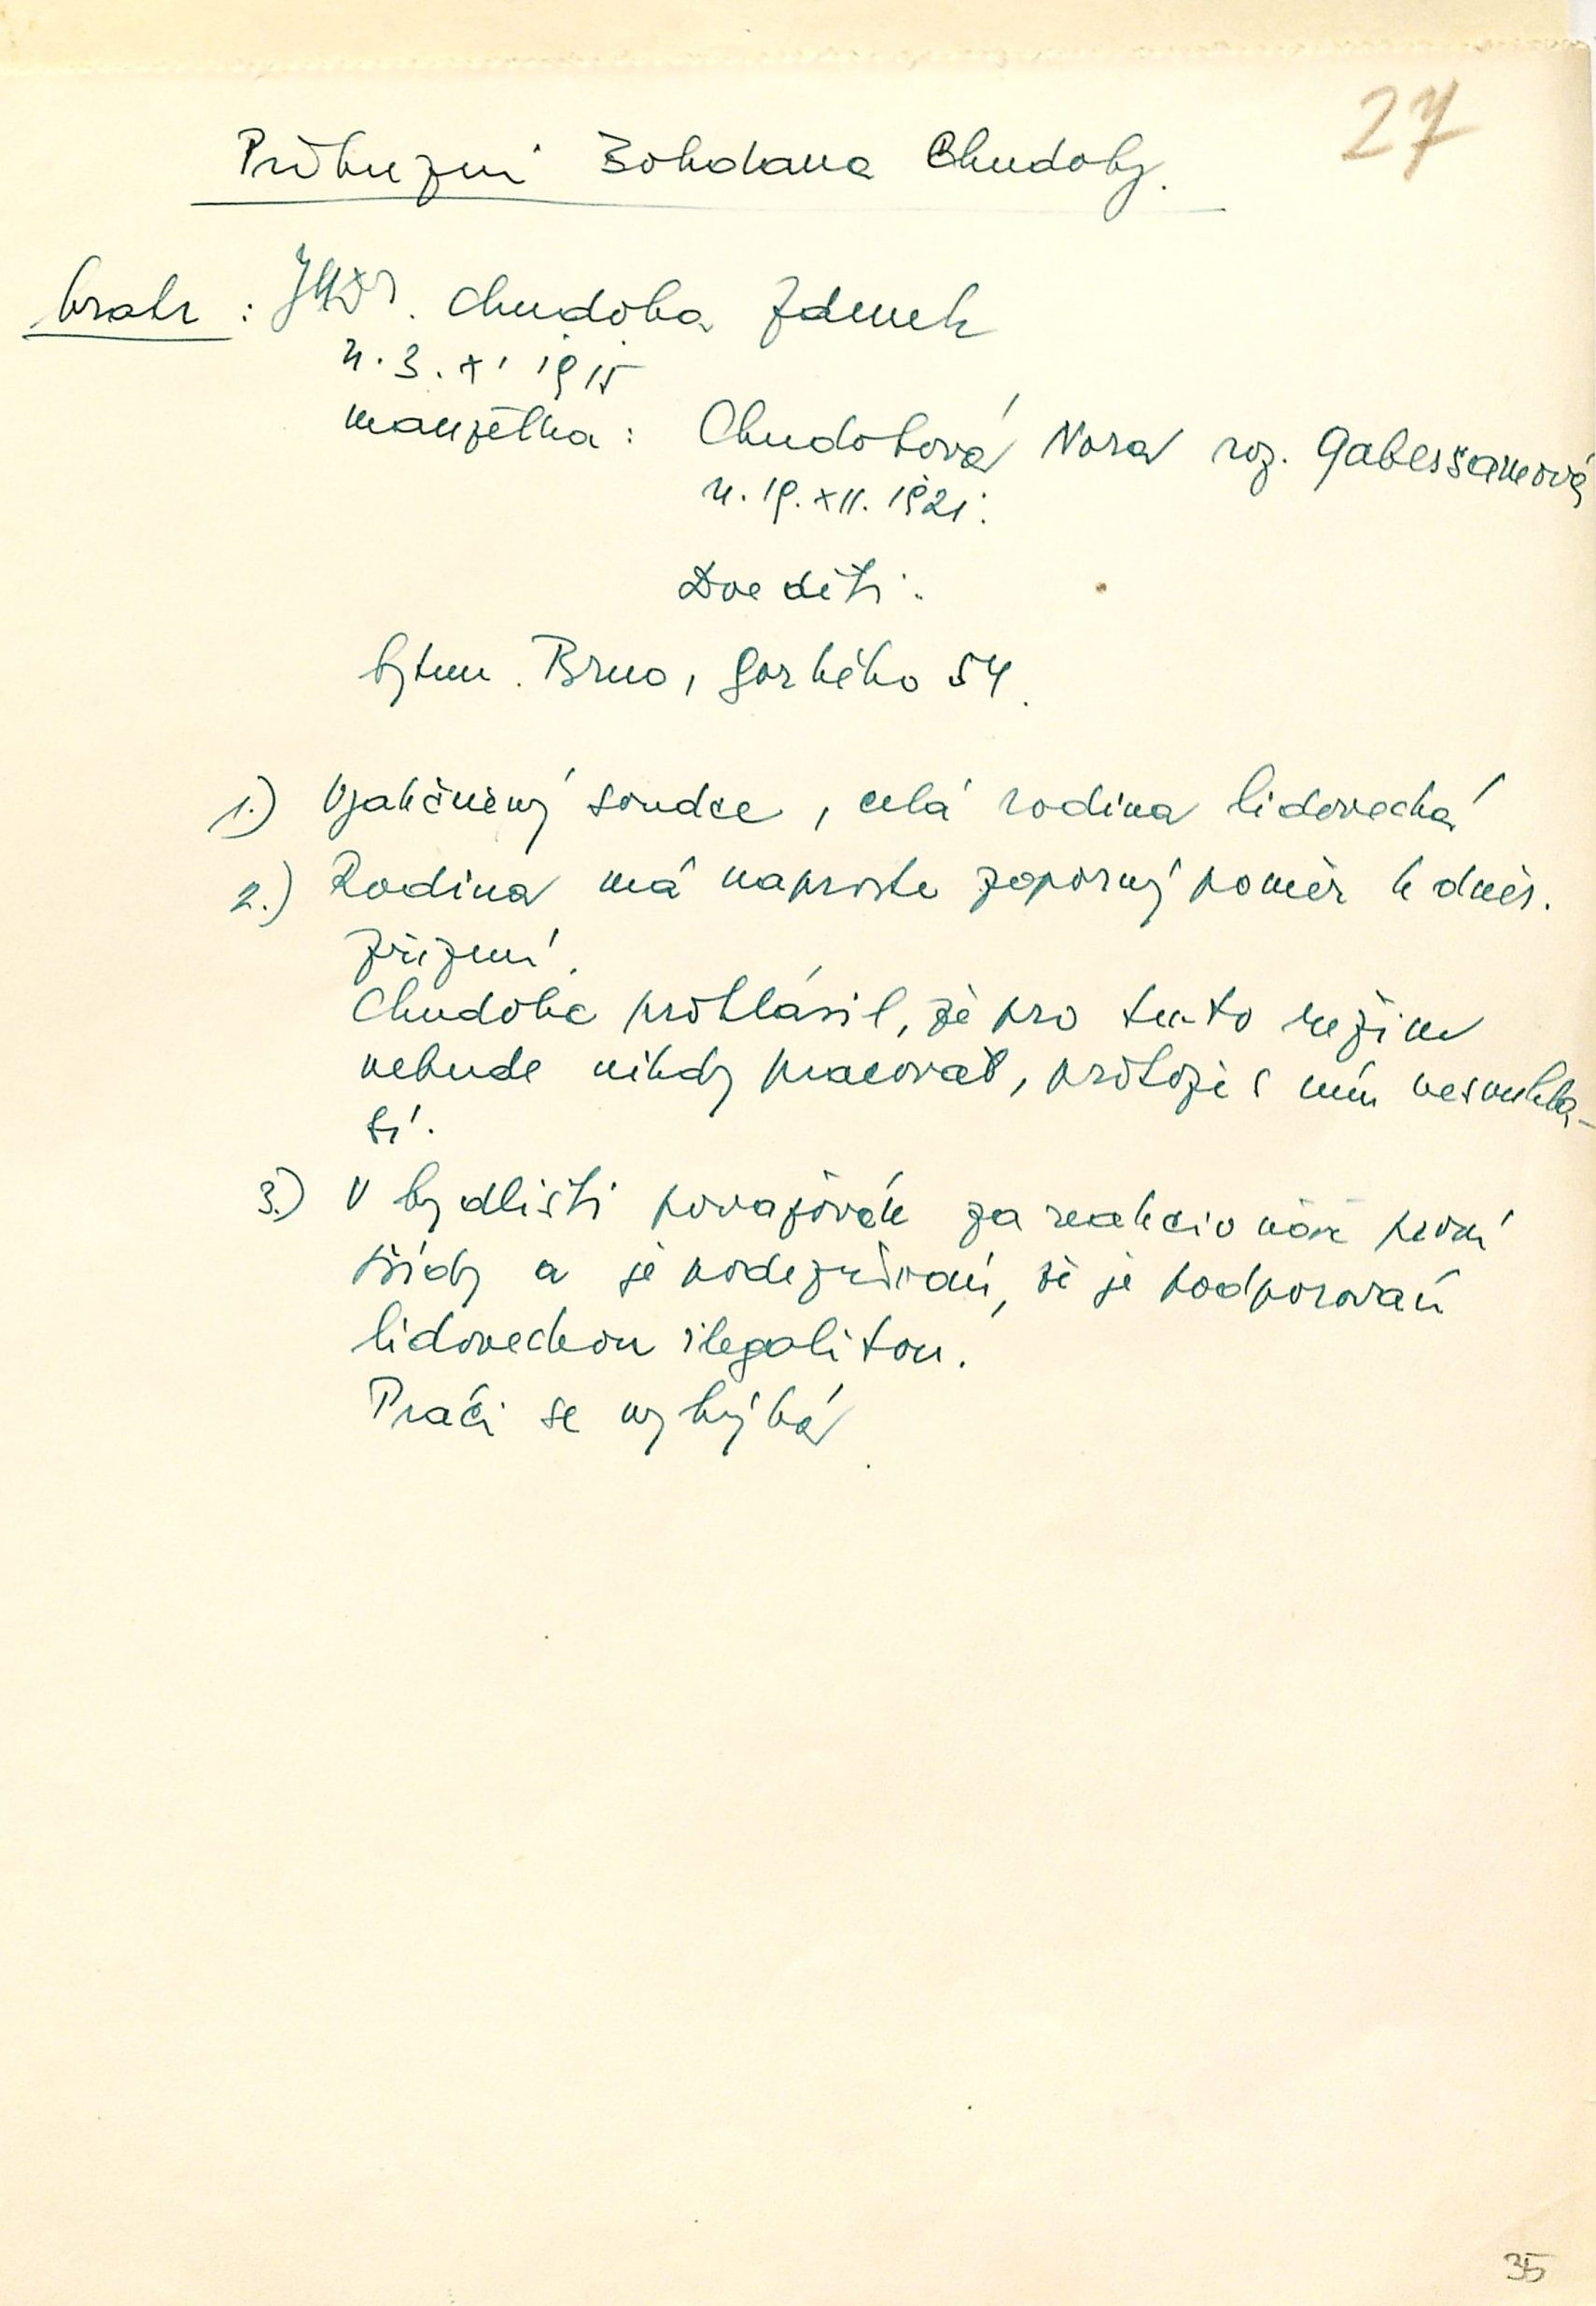 27
Příbuzní Bohdana Chudoby.
bratr : JUDr. Chudoba Zdeněk
n. 3. XI 1915
manželka : Chudobová Nora roz.
n. 19. XII. 1921.
Dvě děti.
bytem. Brno, Gorkého 54.
1.) Vyakčněný soudce, celá rodina lidovecká
2.) Rodina má naprosto záporný poměr k dneš.
zřízení.
Chudoba prohlásil, že pro tento režim
nebude nikdy pracovat, protože s ním nesouhla-
sí.
3.) V bydlišti považován za reakcionáře první
třídy a je podezříván, že je podporován
lidoveckou ilegalitou.
Práci se vyhýbá.
35